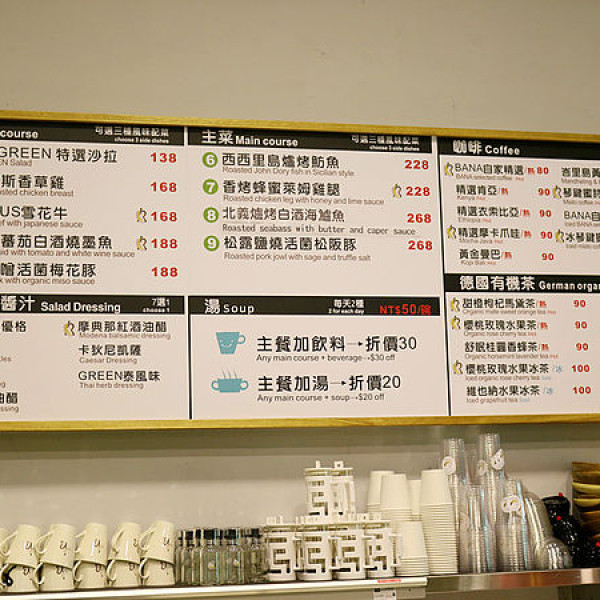 course 可選三種風味配菜
choose 3 side dishes
GREEN 特選沙拉 138
EN Salad
斯香草雞 168
sted chicken breast
US雪花牛 168
ef with japanese sauce
蕃茄白酒燒墨魚 188
id with tomato and white wine sauce
噌活菌梅花豚 188
k with organic miso sauce
醬汁 Salad Dressing 7選1
choose 1
優格
摩典那紅酒油醋
Modena balsamic dressing
卡狄尼凱薩
Caesar Dressing
GREEN泰風味
Thai herb dressing
油醋
主菜 Main course 可選三種風味配菜
choose 3 side dishes
6 西西里島爐烤魴魚 228
Roasted John Dory fish in Sicilian style
7 香烤蜂蜜萊姆雞腿 228
Roasted chicken leg with honey and lime sauce
8 北義爐烤白酒海鱸魚 268
Roasted seabass with butter and caper sauce
9 松露鹽燒活菌松阪豚 268
Roasted pork jowl with sage and truffle salt
湯 Soup 每天2種
2 for each day
NT$50/碗
主餐加飲料→折價30
Any main course + beverage→$30 off
主餐加湯→折價20
Any main course + soup→$20 off
咖啡 Coffee
BANA自家精選/熱 80
BANA selected coffee Hot
精選肯亞/熱 90
Kenya Hot
精選衣索比亞/熱 90
精選摩卡爪哇/熱 90
Mocha Java Hot
黃金曼巴/熱 90
Kopi Bak Hot
峇里島黃
琴鍵蜜
BANA冰
冰琴鍵蜜
德國有機茶 German organ
甜橙枸杞馬黛茶/熱 90
Organic mate sweet orange tea Hot
櫻桃玫瑰水果茶/熱 90
Organic rose cherry tea Hot
舒眠桂圓香蜂茶/熱 90
Organic horsemint lavender tea Hot
櫻桃玫瑰水果冰茶/冰 100
Iced organic rose cherry tea
維也納水果冰茶/冰 100
Iced grapefruit tea